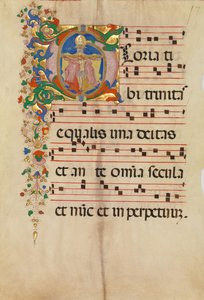 Gloria ti
bi trinitas
equalis una deitas
et an te omīa secula
et nūc et in perpetuum.